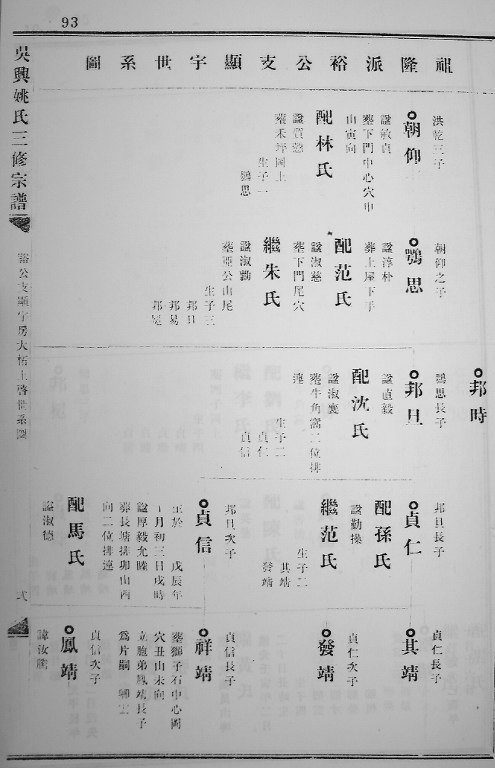 93
祖隆派裕公支顯宇世系圖
吳興姚氏三修宗譜
裕公支顯宇房大梧上啓世系圖
弍
洪乾三子
朝仰
諡敏貞
塟下門中心穴申
山寅向
配林氏
諡質懿
塟禾坪園上
生子一
鶚思
朝仰之子
鶚思
諡淳朴
葬上屋下手
配范氏
諡淑慈
塟下門尾穴
繼朱氏
諡淑勤
塟亞公山尾
生子三
邦旦
邦易
邦時
鶚思長子
邦旦
諡直毅
配沈氏
諡淑襄
塟牛角窩二位排
連
生子二
貞仁
貞信
邦旦長子
貞仁
配孫氏
諡勤操
繼范氏
生子二
其靖
發靖
邦旦次子
貞信
生於 戊辰年
月初三日戌時
諡厚毅允睦
葬長塘排卯山酉
向二位排連
配馬氏
諡淑德
貞仁長子
其靖
貞仁次子
發靖
貞信長子
祥靖
塟獅子石中心圖
穴丑山未向
立胞弟鳳靖長子
為片嗣
貞信次子
鳳靖
諱汝